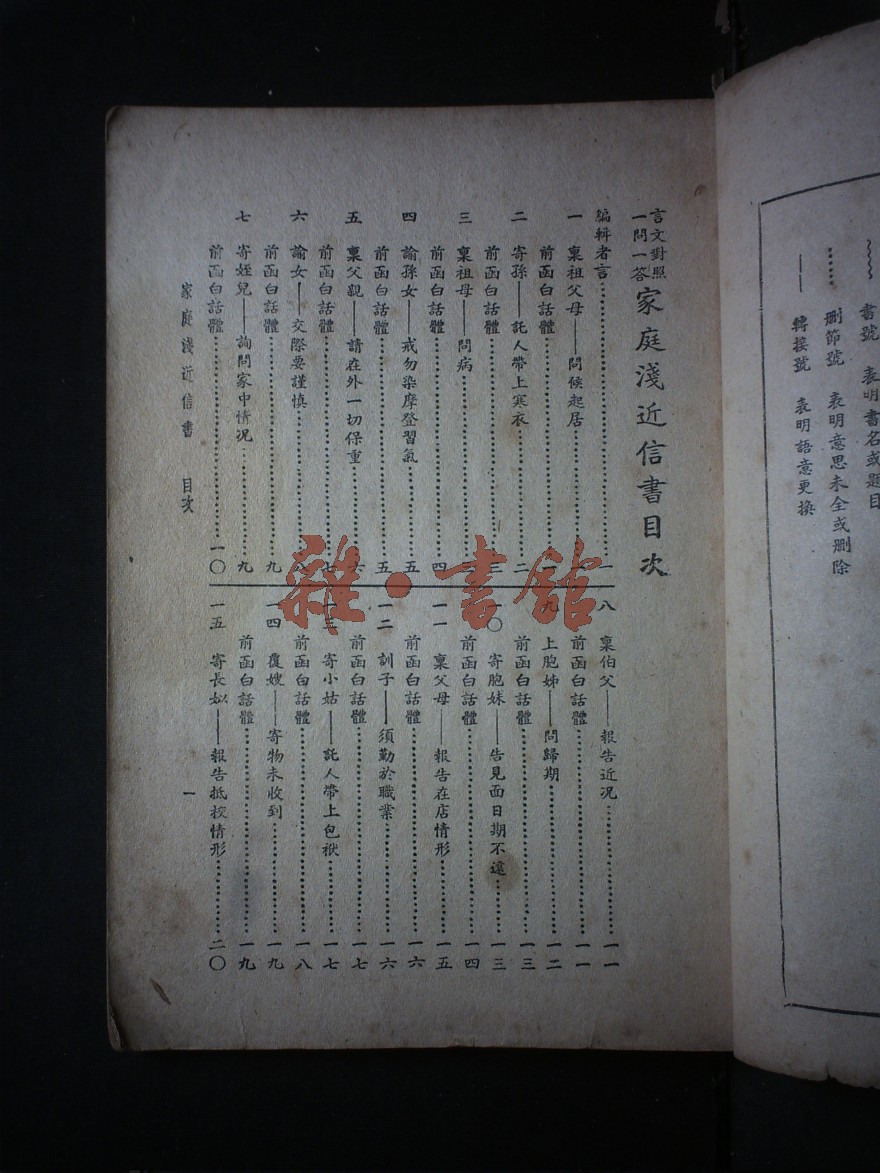 書號　表明書名或題目
……刪節號　表明意思未全或刪除
——轉接號　表明語意更換
言文對照
一問一答
家庭淺近信書目次
編輯者言……一
一　稟祖父母——問候起居……
前函白話體……一
二　寄孫——託人帶上寒衣……二
前函白話體……三
三　稟祖母——問病……
前函白話體……四
四　諭孫女——戒勿染摩登習氣……五
前函白話體……五
五　稟父親——請在外一切保重……六
前函白話體……七
六　諭女——交際要謹慎……八
前函白話體……九
七　寄姪兒——詢問家中情况……九
前函白話體……一〇
八　稟伯父——報告近况……一一
前函白話體……一一
九　上胞姊——問歸期……一二
前函白話體……一三
一〇　寄胞妹——告見面日期不遠……一三
前函白話體……一四
一一　稟父母——報告在店情形……一五
前函白話體……一六
一二　訓子——須勤於職業……一六
前函白話體……一七
一三　寄小姑——託人帶上包袱……一七
前函白話體……一八
一四　覆嫂——寄物未收到……一九
前函白話體……一九
一五　寄長姒——報告抵校情形……二〇
家庭淺近信書　目次　一
雜·書館